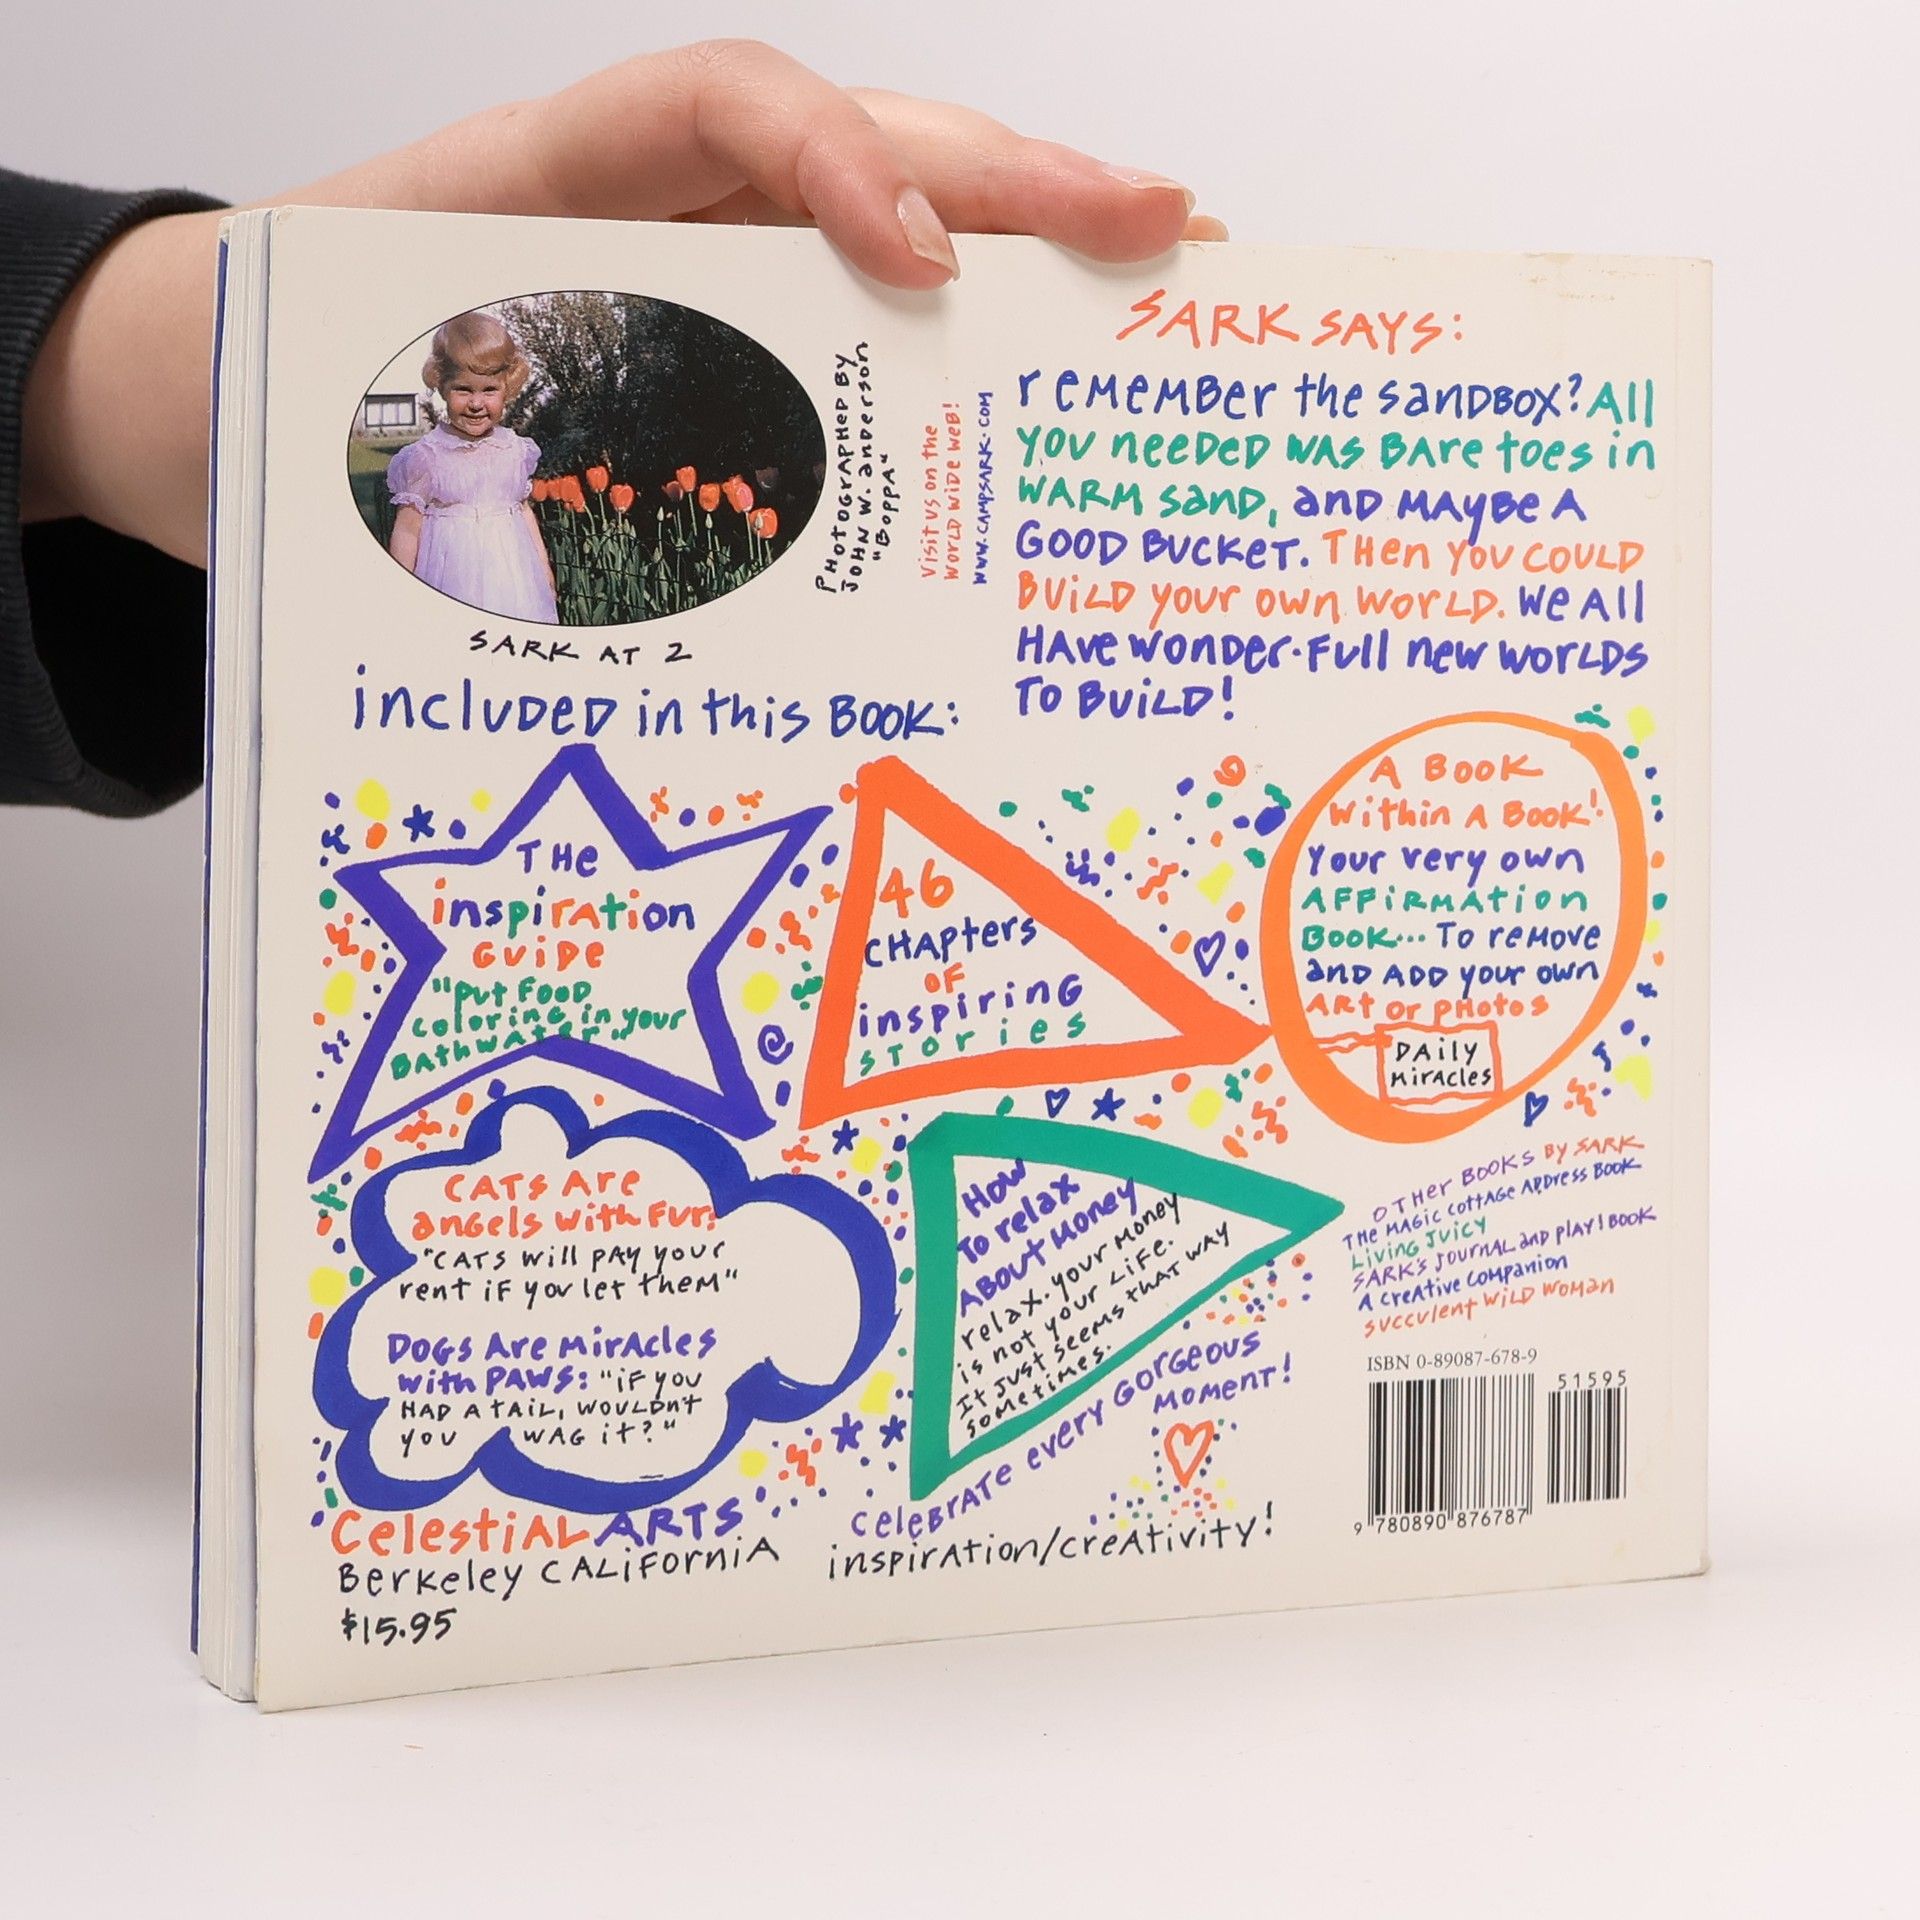 SARK AT 2
PHOTOGRAPHED BY
JOHN W. anderson
"BOPPA"
Visit us on the
WORLD WIDE WEB!
WWW.CAMPSARK.COM
SARK SAYS:
reMeMBer the sanDBOX? All
YOU neeDeD WAS BAre toes in
WARM sanD, anD MAYBe A
GOOD BUCKeT. THen YOU COULD
BUiLD your own WORLD. We All
HAve WonDer·Full new WorLDS
TO BUiLD!
incluDeD in this BOOK:
THe
inspiration
GUiDe
"put FOOD
coloring in your
BAthwater"
46
CHApters
OF
inspiring
stories
A BOOK
Within A BOOK!
Your very own
AFFiRMAtion
BOOK... To reMove
anD ADD your own
ARt or pHotos
DAily
MirAcles
CATs Are
angels with Fur:
"CATS will pAy your
rent iF you let them"
DOGs Are MirAcles
with PAWS: "iF you
HAD A tAiL, WOULDn't
you WAG it?"
How
To relax
ABOUT Money
relax. your Money
is not your LiFe.
It just seems that way
sometimes.
CeleBRATe every GorGeous
MOMENT!
inspiration/creAtivity!
OTHer BOOKS BY SARK
THE MAGic COttAGe ADDress BOOK
Living Juicy
SARK'S JournAL anD PlAY! BOOK
A CreAtive COMpanion
Succulent WiLD WOMan
ISBN 0-89087-678-9
51595
9 780890 876787
CelestiAL ARTS
Berkeley CALiForniA
$15.95